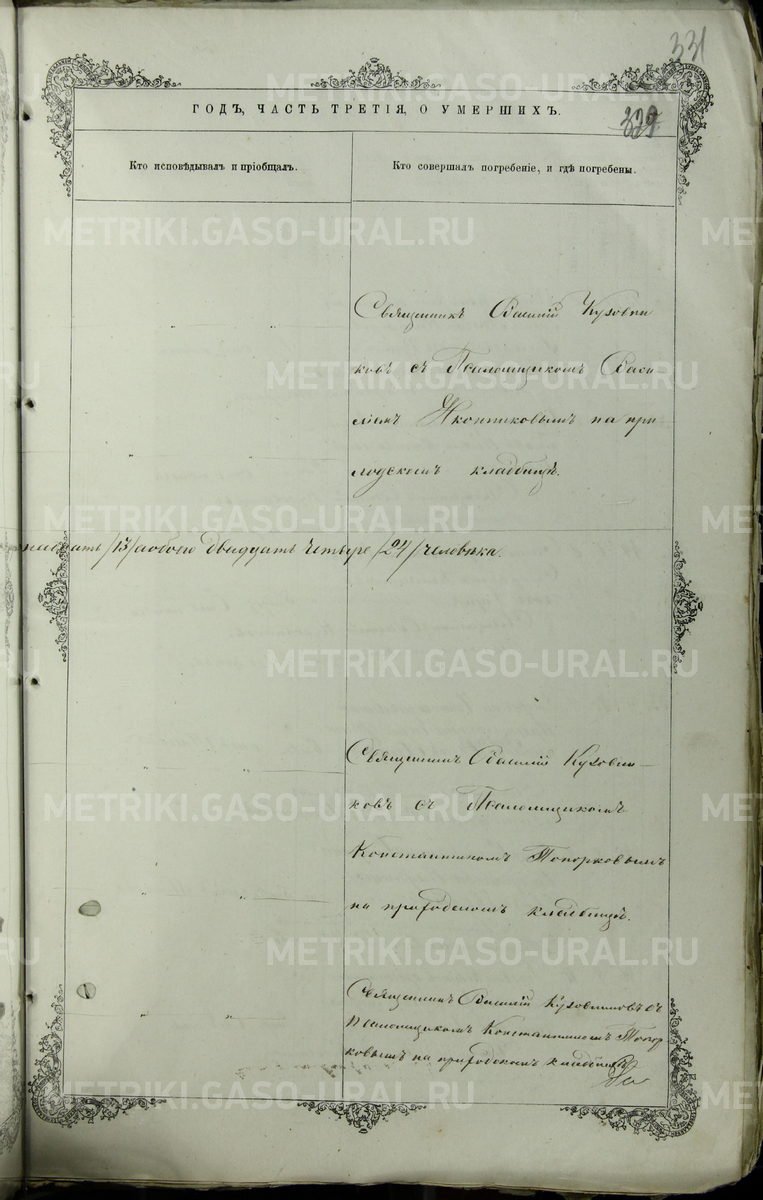 331
329
ГОДЪ, ЧАСТЬ ТРЕТІЯ, О УМЕРШИХЪ.
Кто исповѣдывалъ и пріобщалъ.
Кто совершалъ погребеніе, и гдѣ погребены.
Священникъ Василій Кузовни
ковъ съ Псаломщикомъ Васи
ліемъ Иконниковымъ на при
ходскомъ кладбищѣ.
надцать /13/ а обоего двадцать четыре /24/ человѣка.
Священникъ Василій Кузовни—
ковъ съ Псаломщикомъ
Константиномъ Топорковымъ
на приходскомъ кладбищѣ.
Священникъ Василій Кузовниковъ съ
Псаломщикомъ Константиномъ Топор
ковымъ на приходскомъ кладбищѣ
METRIKI.GASO-URAL.RU